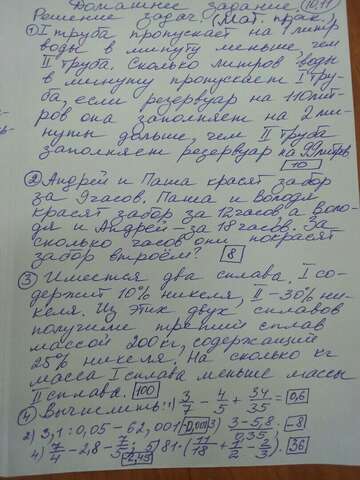 Домашнее задание (10.11)
Решение задач. (Мат. прак.)
① I труба пропускает на 1 литр
воды в минуту меньше, чем
II труба. Сколько литров воды
в минуту пропускает I тру-
ба, если резервуар на 110 лит-
ров она заполняет на 2 ми-
нуты дольше, чем II труба
заполняет резервуар на 99 литров.
10
② Андрей и Паша красят забор
за 9 часов. Паша и Володя
красят забор за 12 часов, а Воло-
дя и Андрей – за 18 часов. За
сколько часов они покрасят
забор втроём? 8
③ Имеется два сплава. I со-
держит 10% никеля, II – 30% ни-
келя. Из этих двух сплавов
получили третий сплав
массой 200 кг, содержащий
25% никеля. На сколько кг
масса I сплава меньше массы
II сплава. 100
④ Вычислить: 1) 3/7 - 4/5 + 34/35 = 0,6
2) 3,1 : 0,05 - 62,001 -0,001 3) (3 - 5,8)/0,35 . -8
4) 7/4 - 2,8 - 7/5 ; -2,45 5) 81 · (11/18 + 1/2 - 2/3) . 36